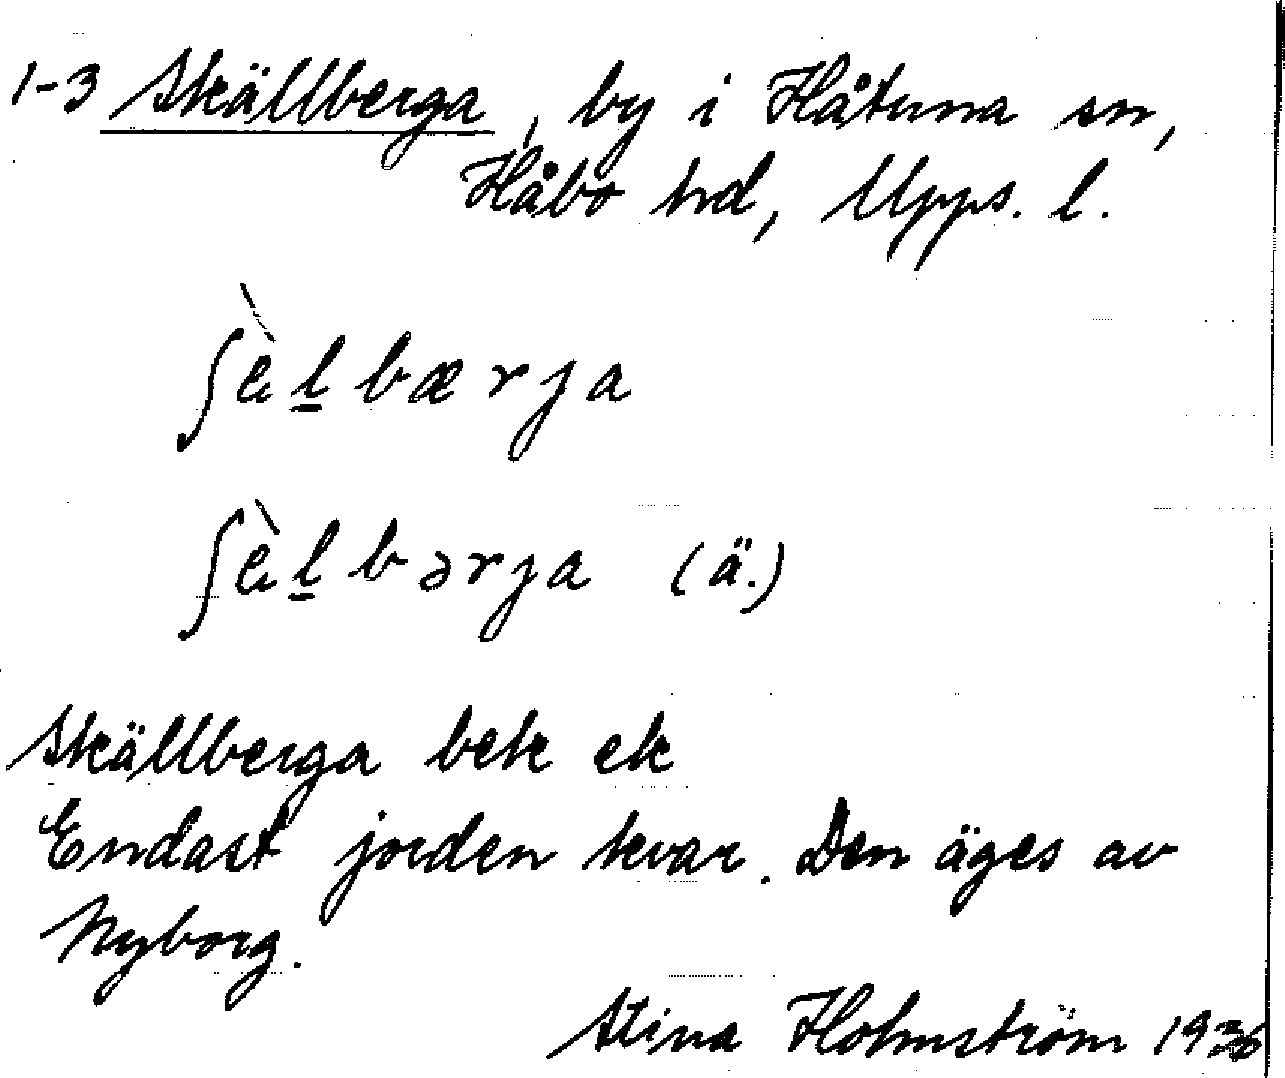 1-3 Skällberga, by i Håtuna sn,
Håbo hd, Upps. l.
ʃèl̲bærja
ʃèl̲bərja (ä.)
Skällberga bek ek
Endast jorden kvar. Den äges av
Nyborg.
Stina Holmström 1936